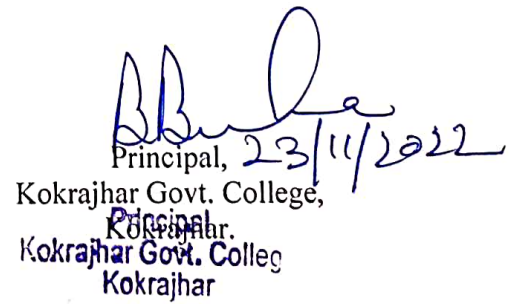 Principal, 23/11/2022
Kokrajhar Govt. College,
Kokrajhar.
Principal
Kokrajhar Govt. Colleg
Kokrajhar